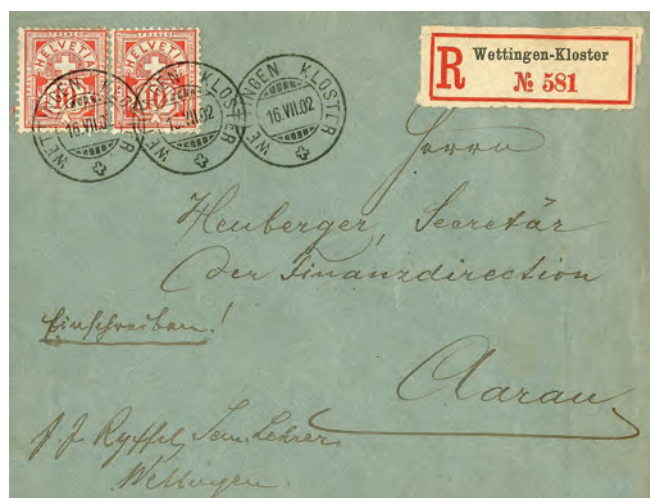 FRANCO FRANCO
HELVETIA HELVETIA
10 10
WETTINGEN KLOSTER
16.VII.02
WETTINGEN KLOSTER
16.VII.02
WETTINGEN KLOSTER
16.VII.02
R Wettingen-Kloster
№ 581
Herrn
Heuberger, Secretär
der Finanzdirection
Einschreiben!
Aarau
J. J. Ryffel, Sem. Lehrer,
Wettingen.